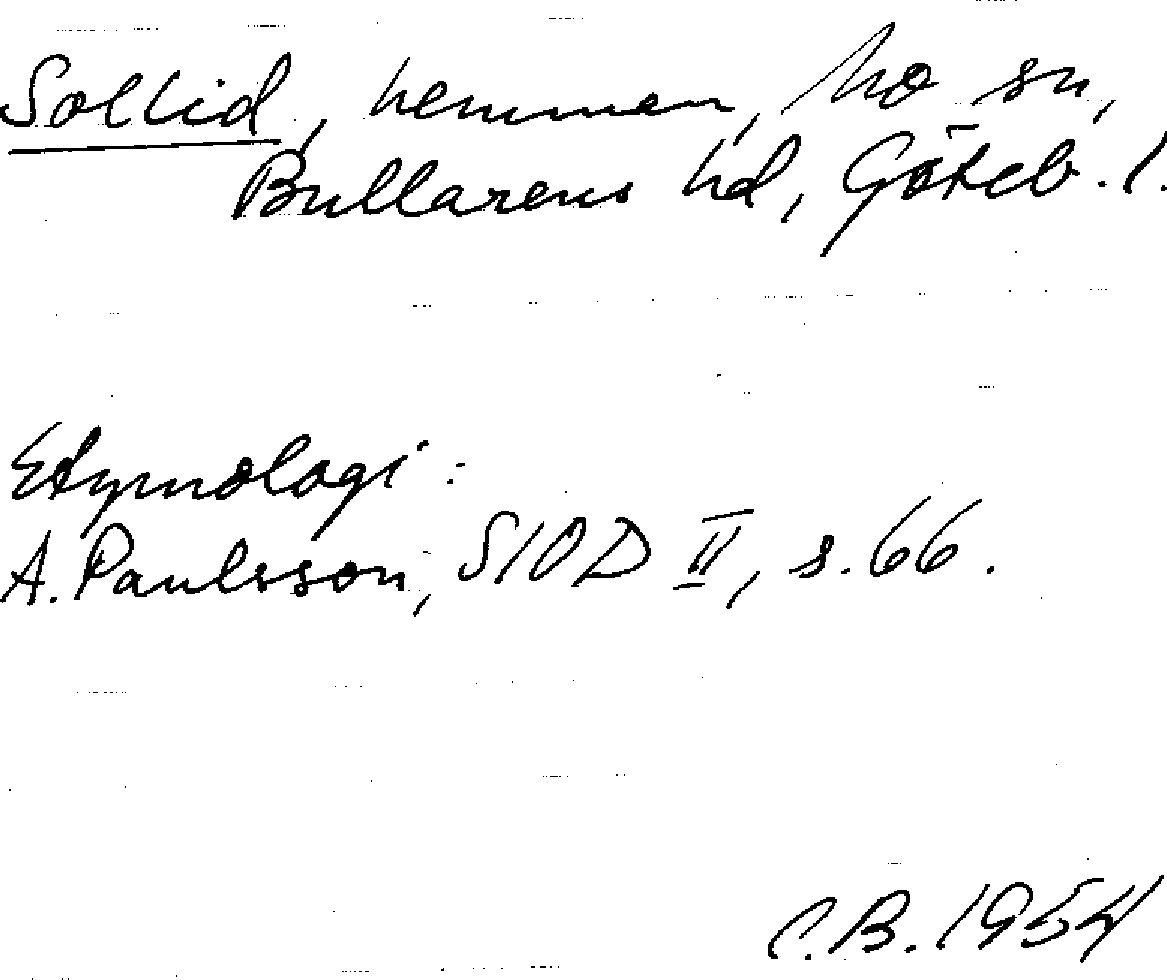 Sollid, hemman, Mo sn,
Bullarens hd, Göteb. l.
Etymologi:
A. Paulsson, SIOD II, s. 66.
C.B. 1954